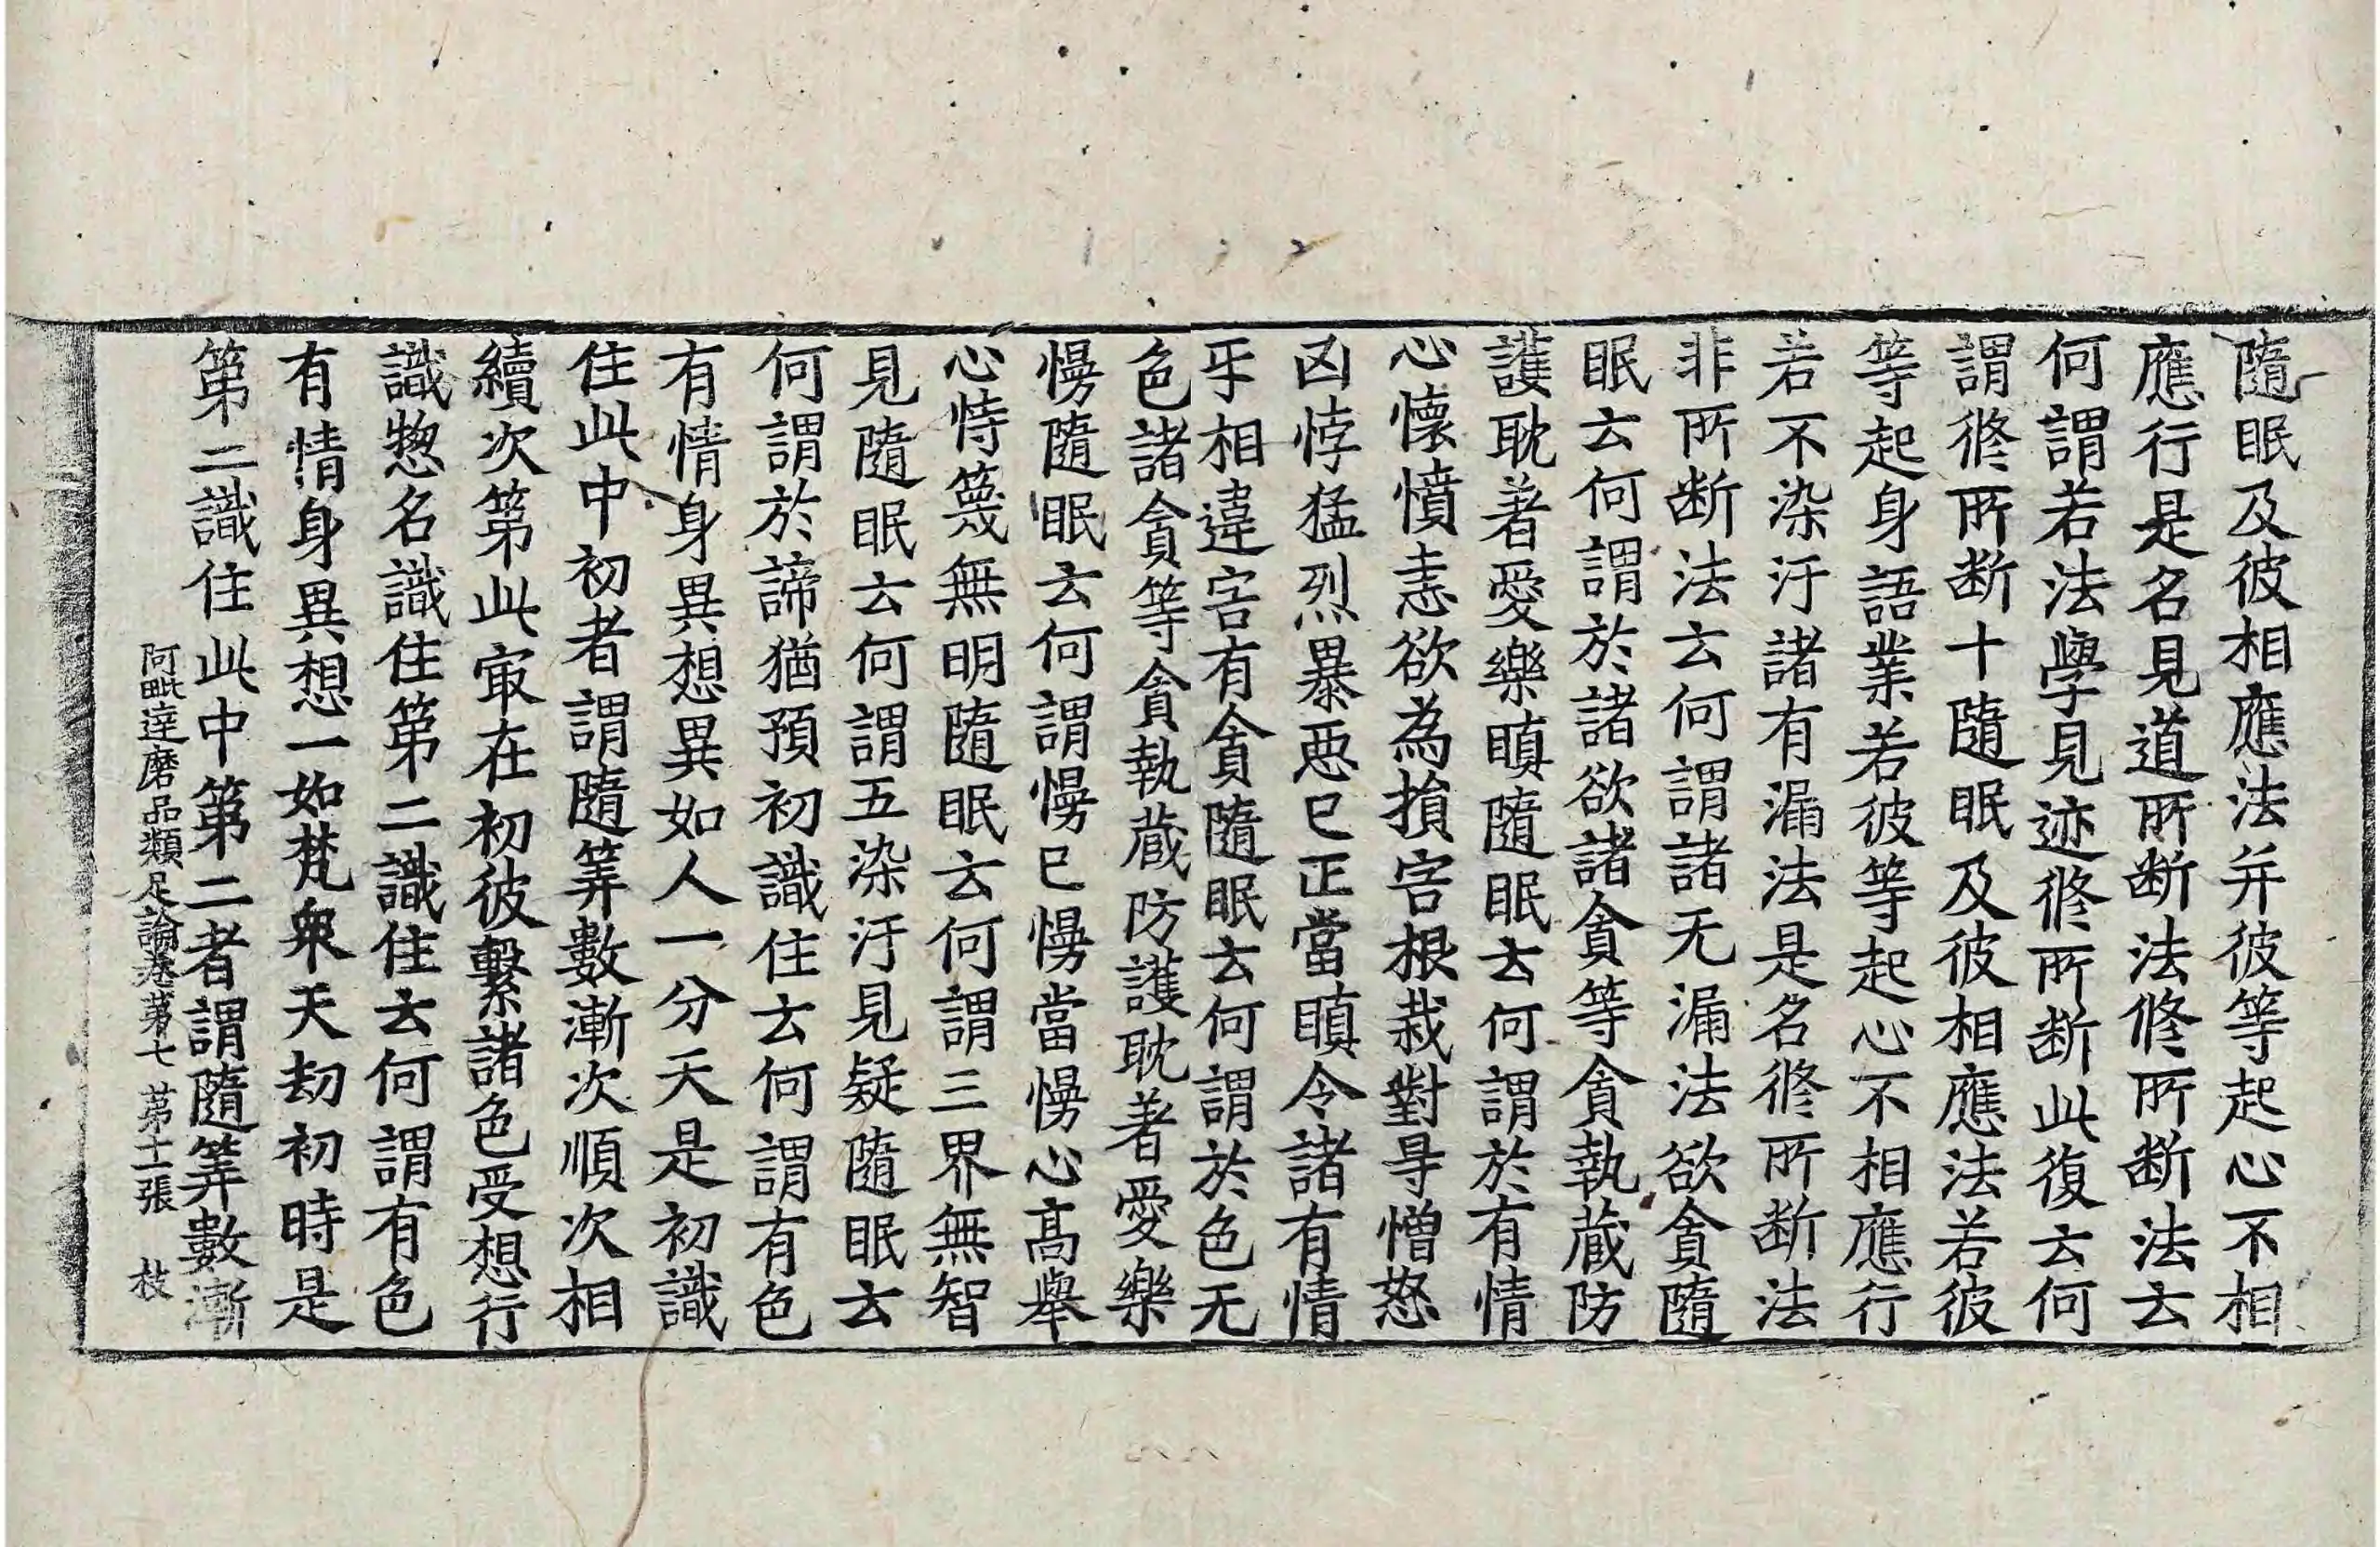 隨眠及彼相應法并彼等起心不相
應行是名見道所断法修所断法云
何謂若法學見迹修所断此復云何
謂修所断十隨眠及彼相應法若彼
等起身語業若彼等起心不相應行
若不染汙諸有漏法是名修所断法
非所断法云何謂諸无漏法欲貪隨
眠云何謂於諸欲諸貪等貪執蔵防
護耽著愛樂瞋隨眠云何謂於有情
心懷憤恚欲為損害根栽對㝵憎怒
凶悖猛烈暴惡已正當瞋令諸有情
乎相違害有貪隨眠云何謂於色无
色諸貪等貪執蔵防護耽著愛樂
慢隨眠云何謂慢已慢當慢心髙舉
心恃篾無明隨眠云何謂三界無智
見隨眠云何謂五染汙見疑隨眠云
何謂於諦猶預初識住云何謂有色
有情身異想異如人一分天是初識
住此中初者謂隨筭數漸次順次相
續次第此㝡在初彼繫諸色受想行
識惣名識住第二識住云何謂有色
有情身異想一如梵衆天劫初時是
第二識住此中第二者謂隨筭數漸
阿毗達磨品類足論卷第七 第十二張 枝